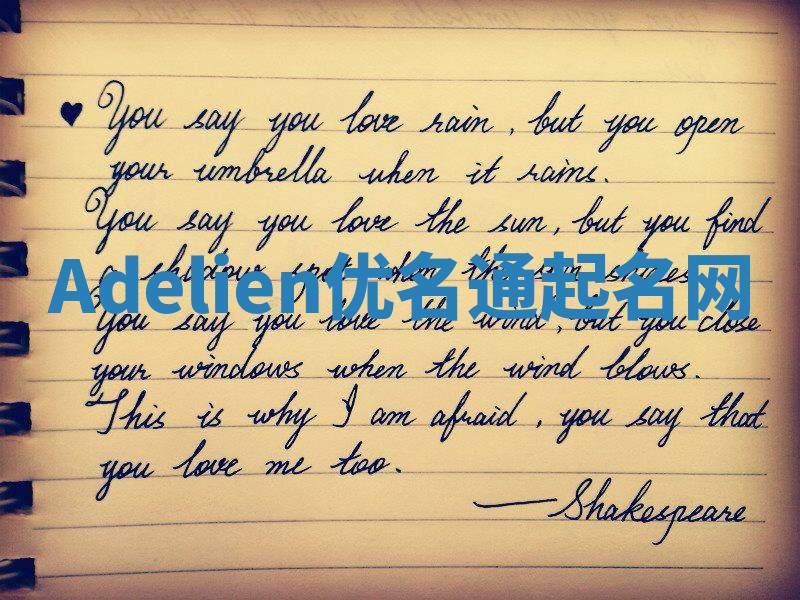 ♥ You say you love rain, but you open
your umbrella when it rains.
You say you love the sun, but you find
a shadow spot when the sun shines
Adelien优名通起名网
You say you love the wind, but you close
your windows when the wind blows.
This is why I am afraid, you say that
you love me too.
—Shakespeare